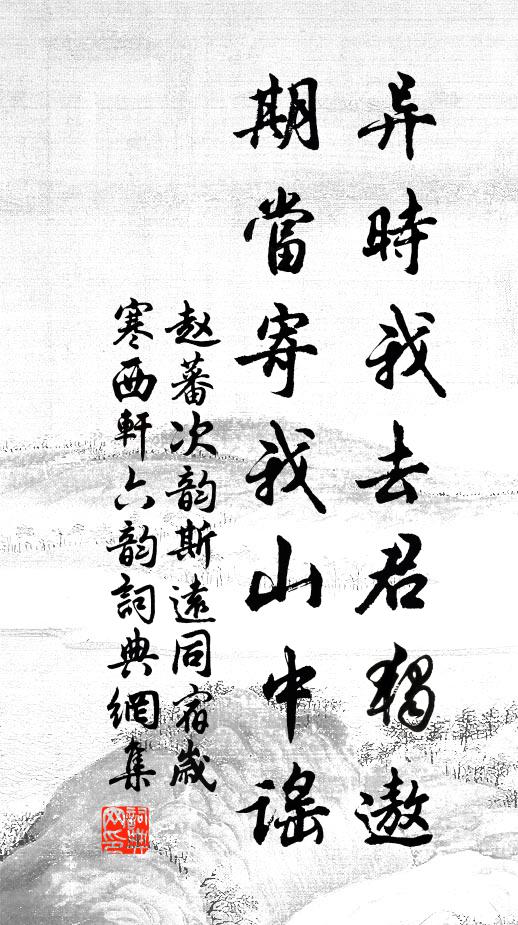 异時我去君獨遨
期當寄我山中謠
赵蕃次韵斯遠同宿歲
寒西軒六韵詞典網集